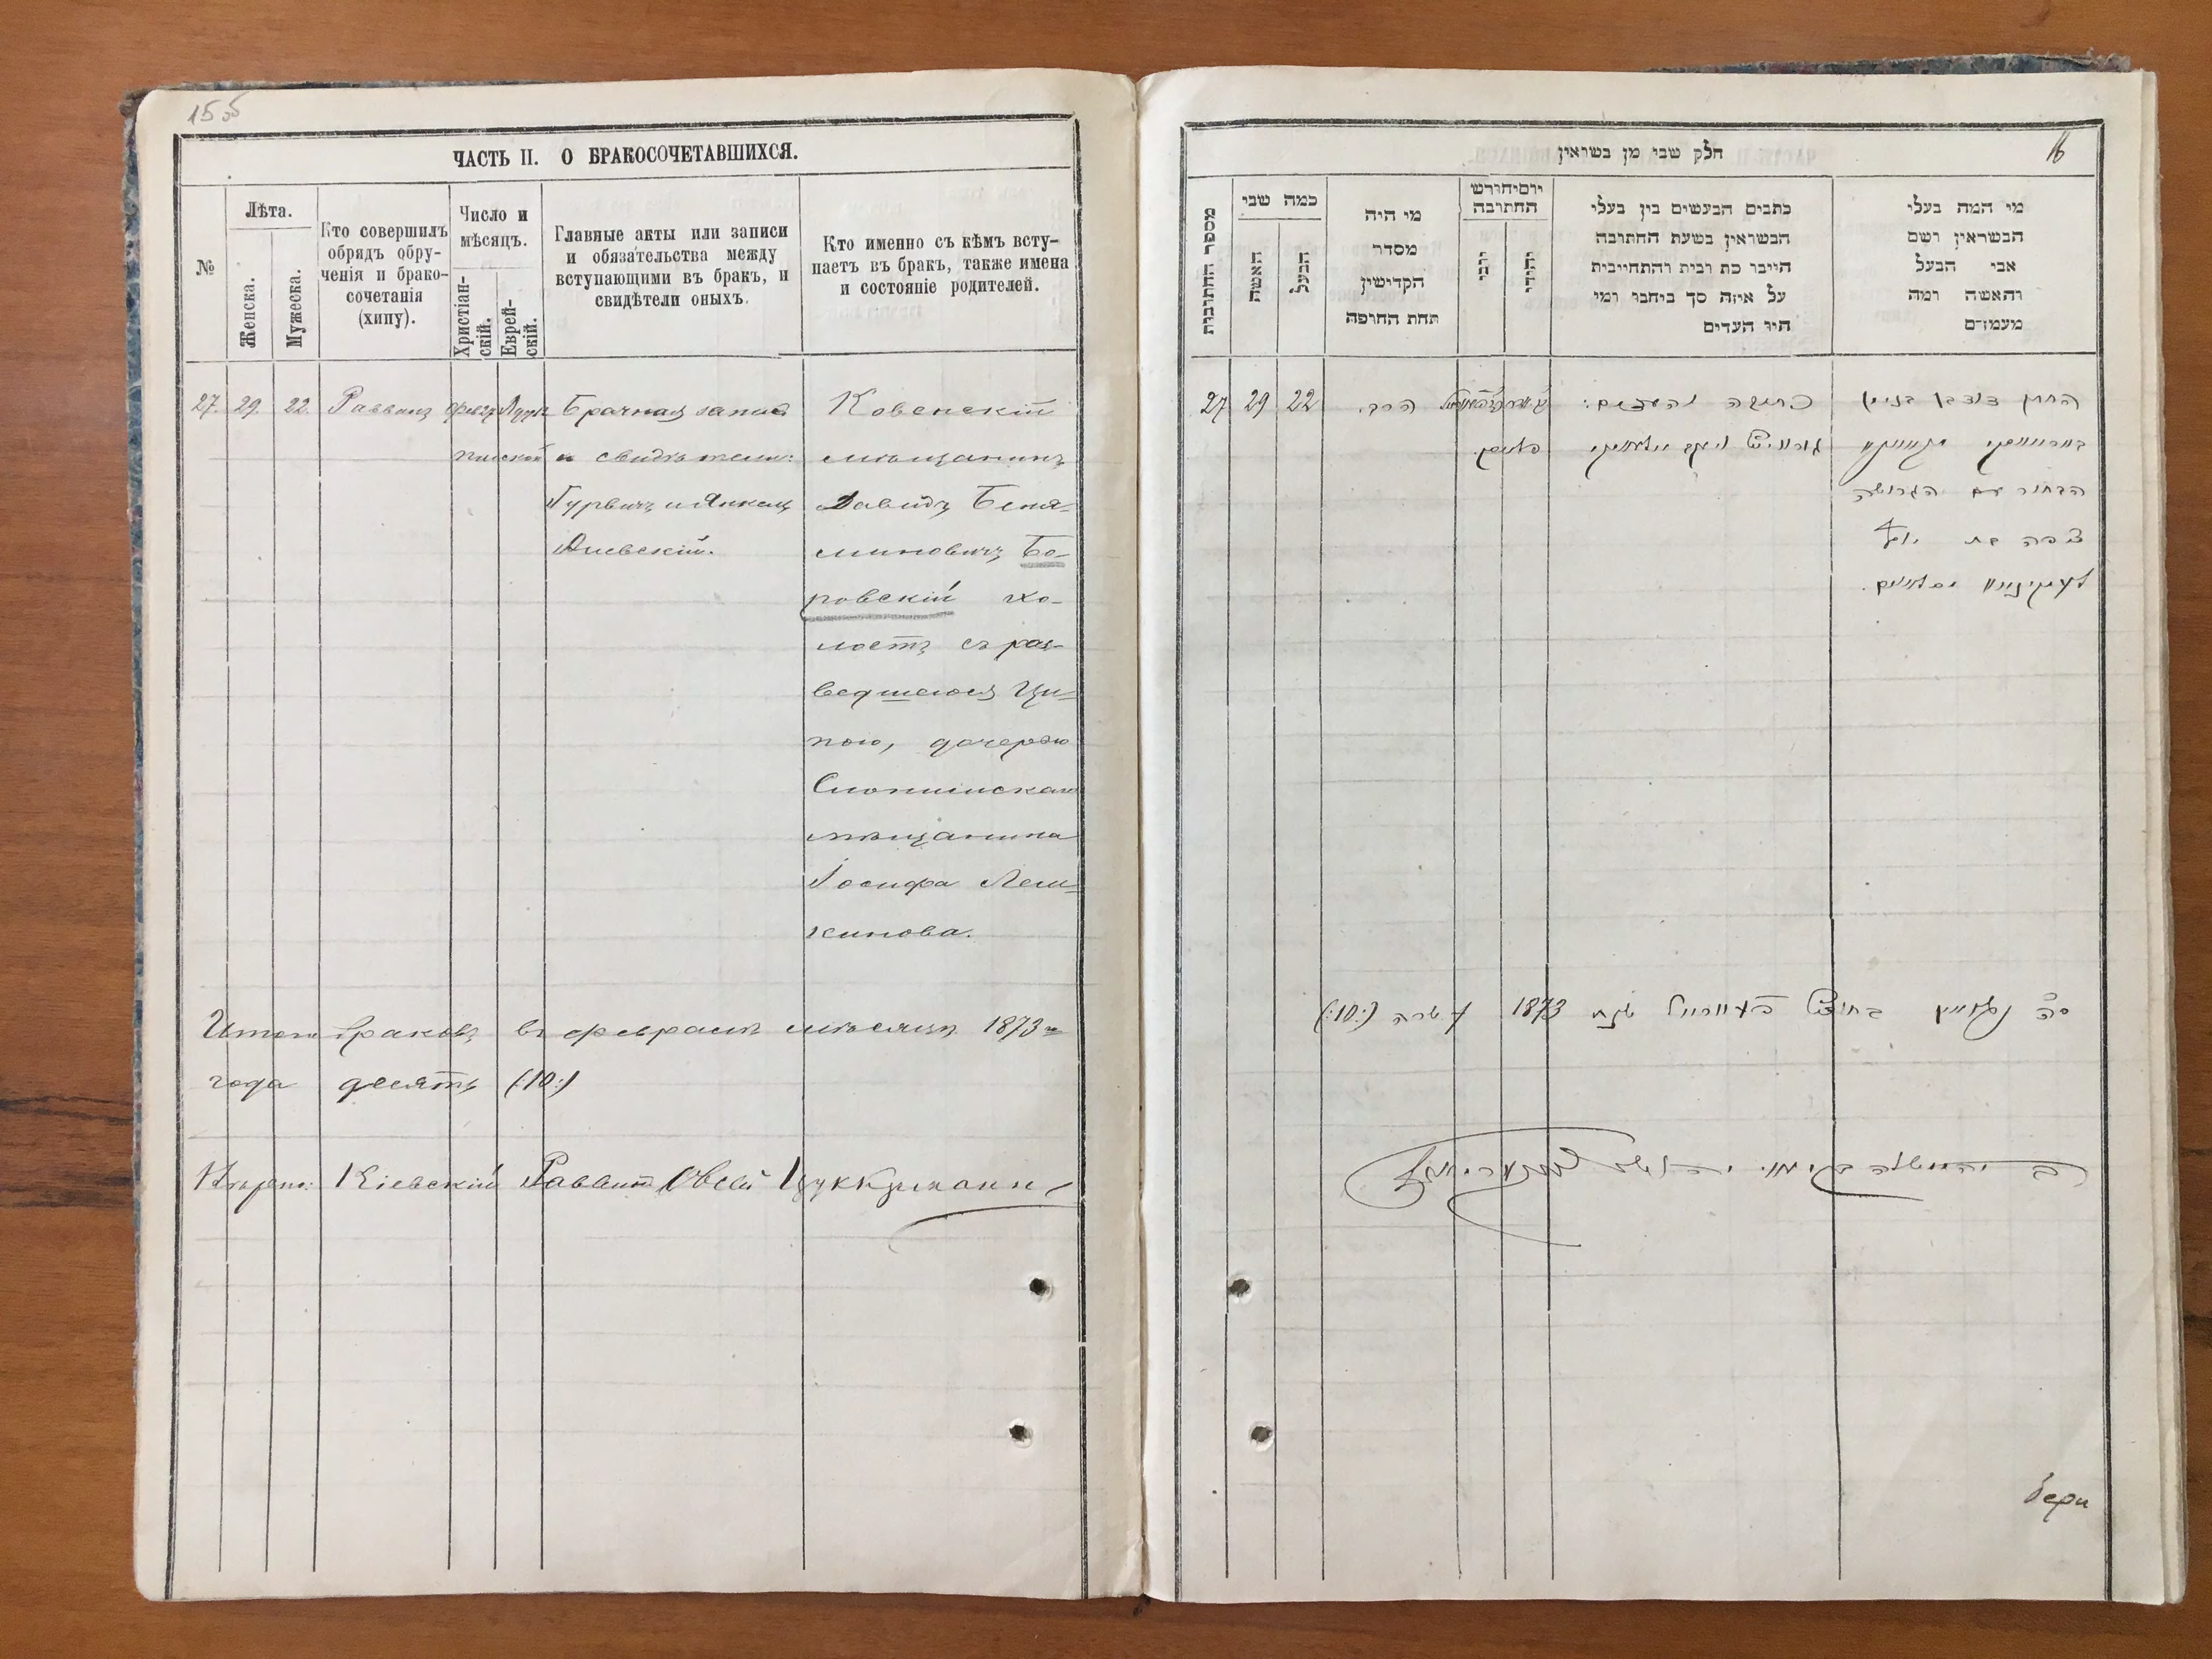 155
ЧАСТЬ II. О БРАКОСОЧЕТАВШИХСЯ.
№
Лѣта.
Женска.
Мужеска.
Кто совершилъ
обрядъ обру-
ченія и брако-
сочетанія
(хипу).
Число и
мѣсяцъ.
Христіан-
скій.
Еврей-
скій.
Главные акты или записи
и обязательства между
вступающими въ бракъ, и
свидѣтели оныхъ.
Кто именно съ кѣмъ всту-
паетъ въ бракъ, также имена
и состояніе родителей.
27. 29. 22. Раввинъ
Брачная запись
и свидѣтели:
Гурвичъ и Янкель
Ковенскій
мѣщанинъ
Давидъ Беня-
миновичъ Бо-
ровскій хо-
лостъ съ раз-
ведшеюся Ци-
пою, дочерью
Слонимскаго
мѣщанина
Іосифа Лем-
кинова.
Итого браковъ въ февралѣ мѣсяцѣ 1873го
года десять (:10:)
Вѣрно: Кіевскій Раввинъ Овсей Цуккерманъ
16
חלק שני מן נשואין
מספר החתונות
כמה שני
האשה
הבעל
מי היה
מסדר
הקדישין
תחת החופה
יום וחודש
החתונה
יוני
יהודי
כתבים הנעשים בין בעלי
הנשואין בשעת החתונה
היינו כת ובית והתחייבות
על איזה סך ביחבו ומי
היו העדים
מי המה בעלי
הנשואין ושם
אבי הבעל
והאשה ומה
מעמדם
27 29 22 הרב.
כתובה והעדים:
גורוויץ
הבחור עם הגרושה
צפה בת יוסף
1873 עשרה (:10:)
бери